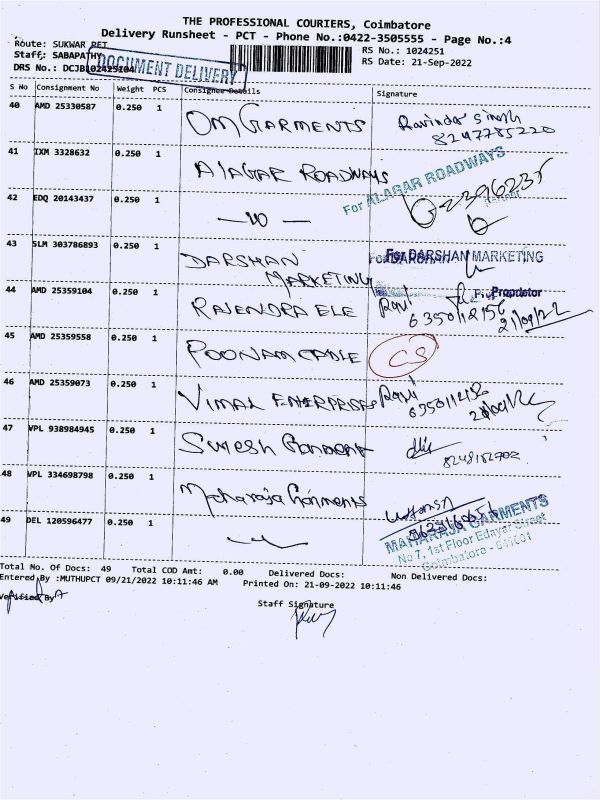 THE PROFESSIONAL COURIERS, Coimbatore
Delivery Runsheet - PCT - Phone No.:0422-3505555 - Page No.:4
Route: SUKWAR PET
RS No.: 1024251
Staff: SABAPATHY
RS Date: 21-Sep-2022
DRS No.: DCJB102425104
DOCUMENT DELIVERY
S No Consignment No Weight PCS Consignee Details Signature
40 AMD 25330587 0.250 1 OM GARMENTS Ravinder Singh
8247785220
41 IXM 3328632 0.250 1 ALAGAR ROADWAYS
For ALAGAR ROADWAYS
42 EDQ 20143437 0.250 1
43 SLM 303786893 0.250 1 DARSHAN MARKETING
For DARSHAN MARKETING
Proprietor
44 AMD 25359104 0.250 1 RAJENDRA ELE Ravi
6350112156
21/09/22
45 AMD 25359558 0.250 1 POONAM CABLE CS
46 AMD 25359073 0.250 1 VIMAL ENTERPRISES Ravi
47 VPL 938984945 0.250 1 Suresh
48 VPL 334698798 0.250 1 Maharaja Garments
49 DEL 120596477 0.250 1
MAHARAJA GARMENTS
No.7, 1st Floor Edayar Street
Coimbatore - 641001
Total No. Of Docs: 49 Total COD Amt: 0.00 Delivered Docs: Non Delivered Docs:
Entered By :MUTHUPCT 09/21/2022 10:11:46 AM Printed On: 21-09-2022 10:11:46
Verified By
Staff Signature